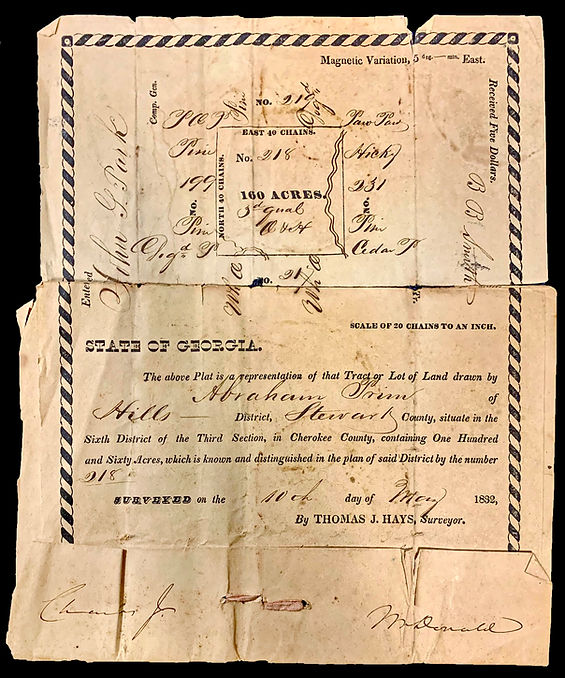 Magnetic Variation, 5 deg.— min. East.
Comp. Gen.
John G Park
Entered
No. 219
Pine
EAST 40 CHAINS.
NORTH 40 CHAINS.
No. 218
160 ACRES.
3d qual
O & H
Pine
199
No.
Pine
Dogd P
Paw Paw
Hicky
231
No.
Pine
Cedar P
No. 21
Wh O
Wh O
Received Five Dollars.
B B Smith
SCALE OF 20 CHAINS TO AN INCH.
STATE OF GEORGIA.
The above Plat is a representation of that Tract or Lot of Land drawn by
Abraham Prim of
Hills — District, Stewart County, situate in the
Sixth District of the Third Section, in Cherokee County, containing One Hundred
and Sixty Acres, which is known and distinguished in the plan of said District by the number
218
SURVEYED on the 10th day of May 1832,
By THOMAS J. HAYS, Surveyor.
Charles J.
McDonald